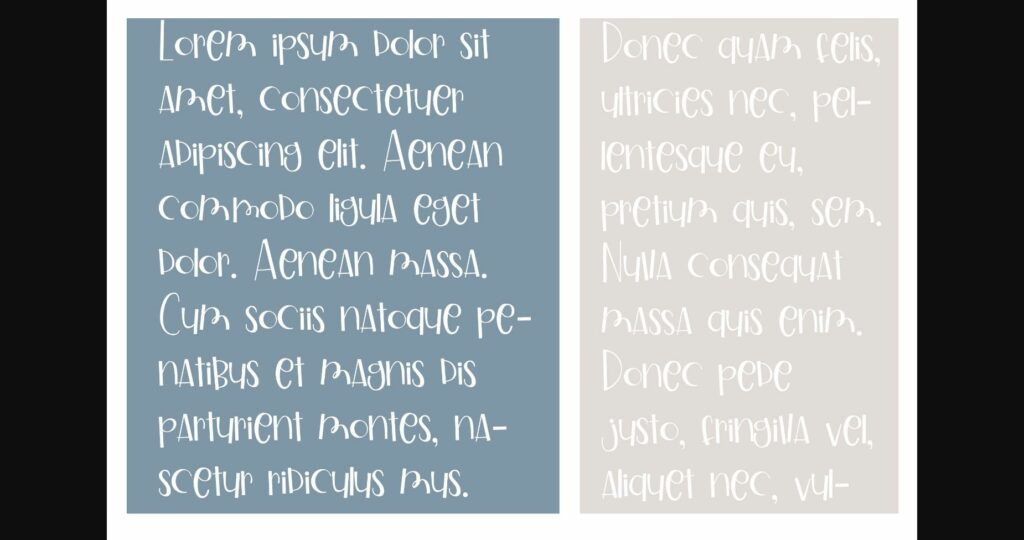 Lorem ipsum dolor sit
amet, consectetuer
adipiscing elit. Aenean
commodo ligula eget
dolor. Aenean massa.
Cum sociis natoque pe-
natibus et magnis dis
parturient montes, na-
scetur ridiculus mus.
Donec quam felis,
ultricies nec, pel-
lentesque eu,
pretium quis, sem.
Nulla consequat
massa quis enim.
Donec pede
justo, fringilla vel,
aliquet nec, vul-